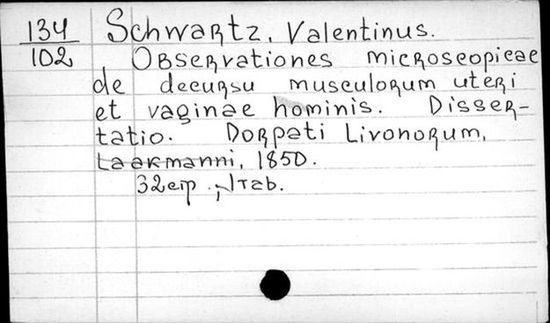 134
102
Schwartz, Valentinus.
Observationes microscopicae
de decursu musculorum uteri
et vaginae hominis. Disser-
tatio. Dorpati Livonorum,
Laakmanni, 1850.
32 стр., 1 tab.